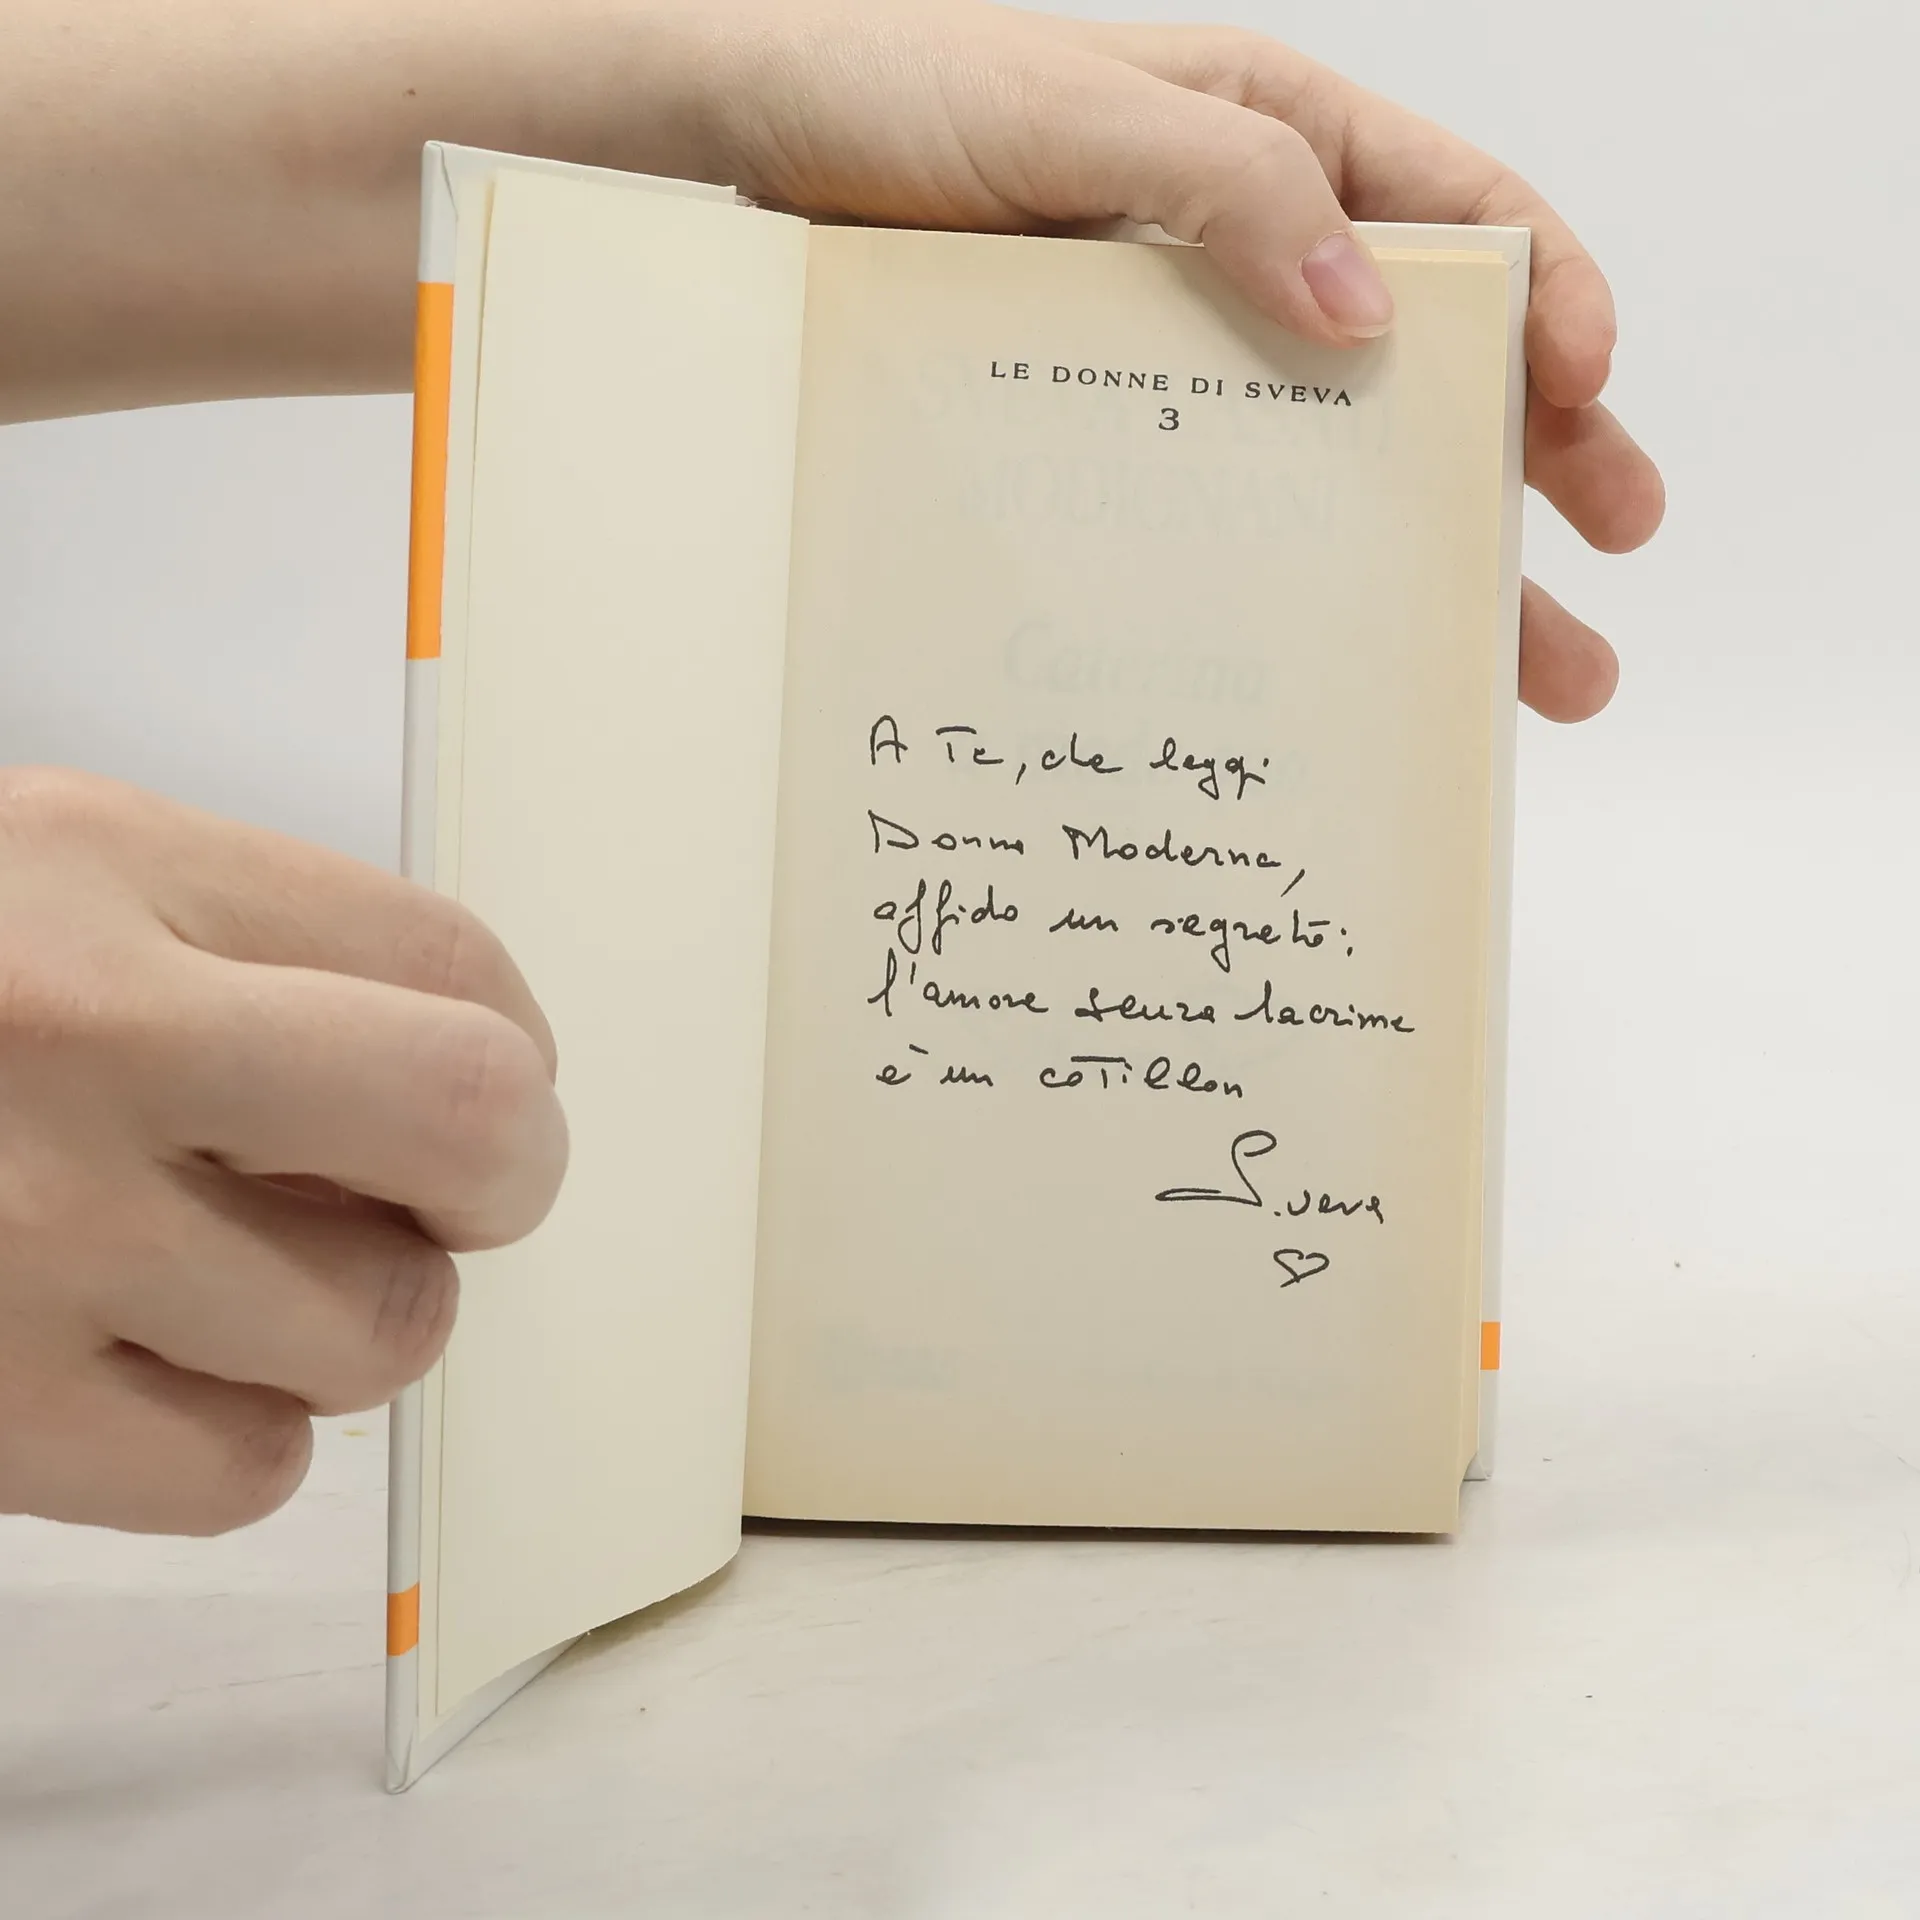 LE DONNE DI SVEVA
3
A Te, che leggi
Donna Moderna,
affido un segreto:
l'amore senza lacrime
è un coTillon
Sveva